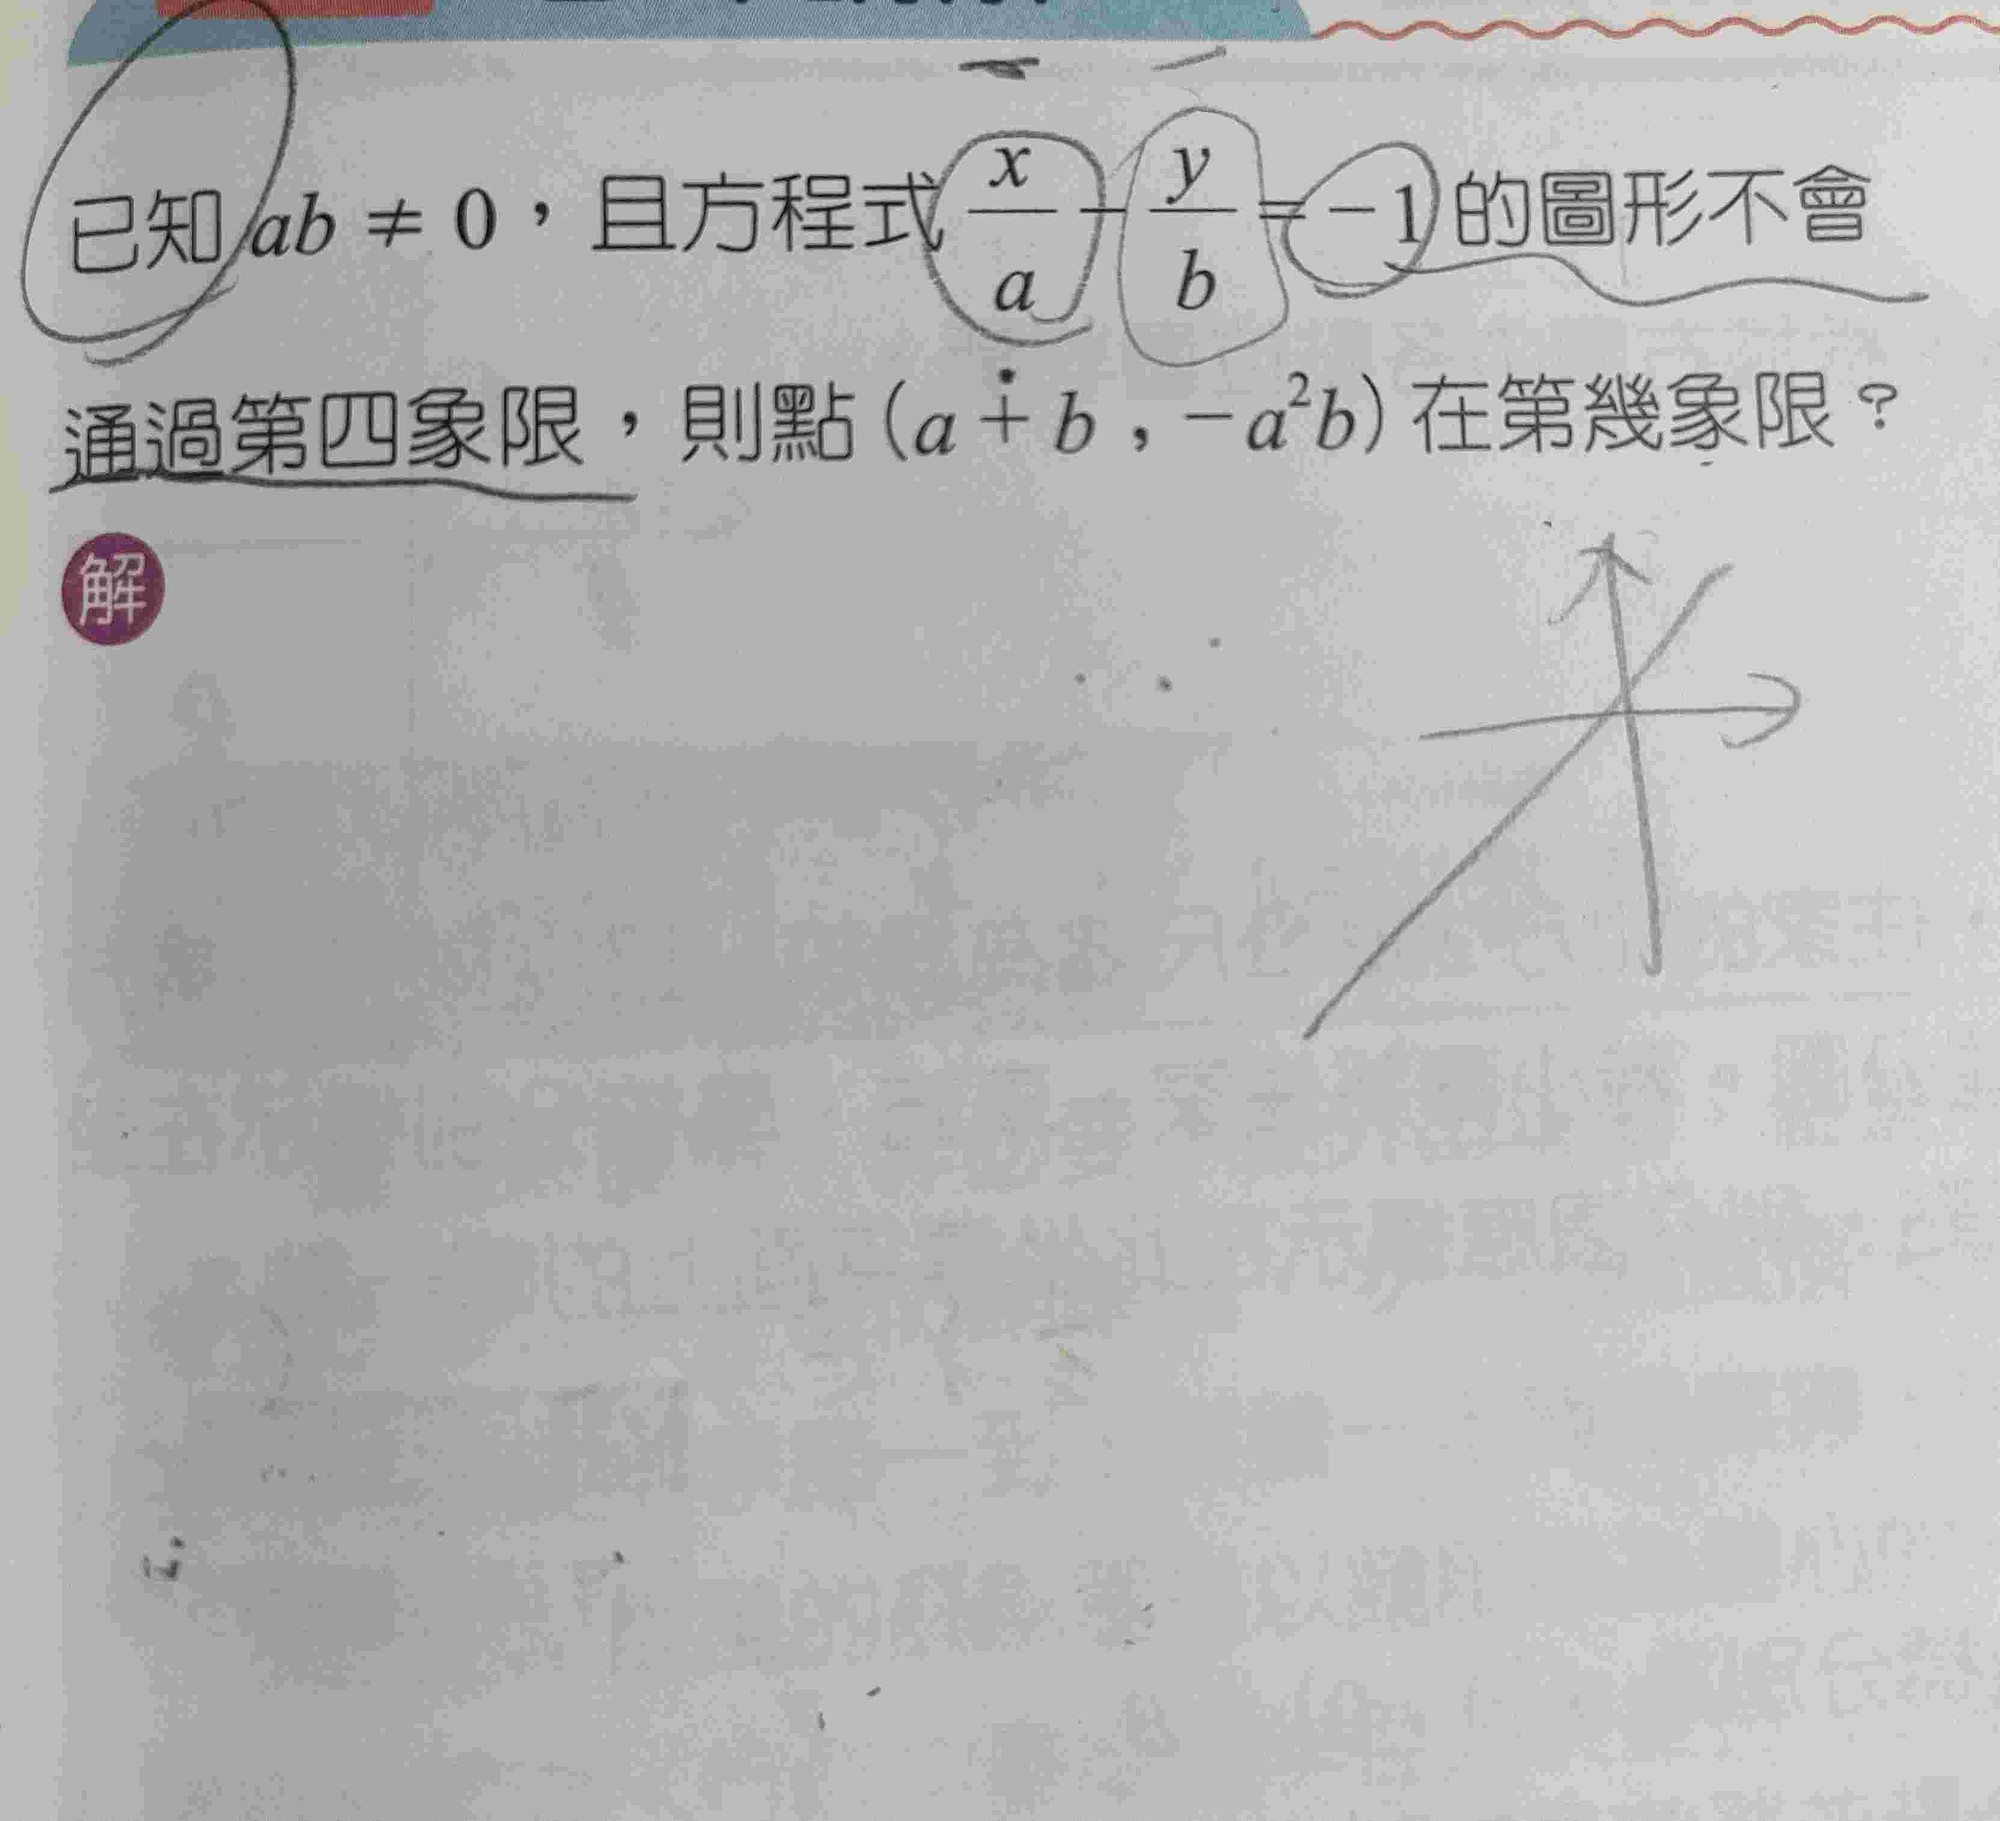 已知 ab ≠ 0，且方程式 x/a - y/b = -1 的圖形不會
通過第四象限，則點 (a + b , -a²b) 在第幾象限？
解